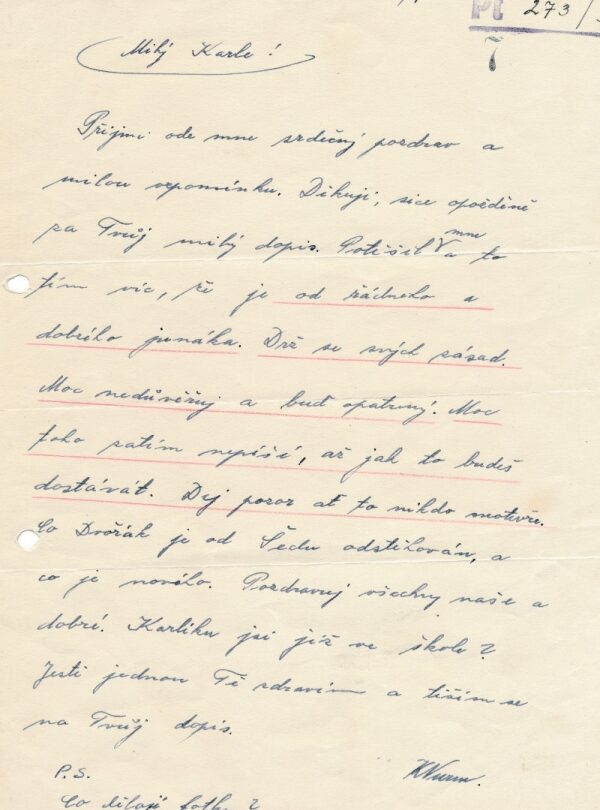 Pt 273/
7
Milý Karle!
Přijmi ode mne srdečný pozdrav a
milou vzpomínku. Děkuji, sice opožděně
za Tvůj milý dopis. Potěšil mne a to
tím víc, že je od řádného a
dobrého junáka. Drž se svých zásad.
Moc nedůvěřuj a buď opatrný. Moc
toho zatím nepíši, až jak to budeš
dostávát. Dej pozor ať to nikdo neotevře.
Co Dvořák je od Šedu odstěhován, a
co je nového. Pozdravuj všechny naše a
dobré. Karlíku jsi již ve škole?
Ještě jednou Tě zdravím a těším se
na Tvůj dopis.
KWurm.
P.S.
Co dělají fotky?